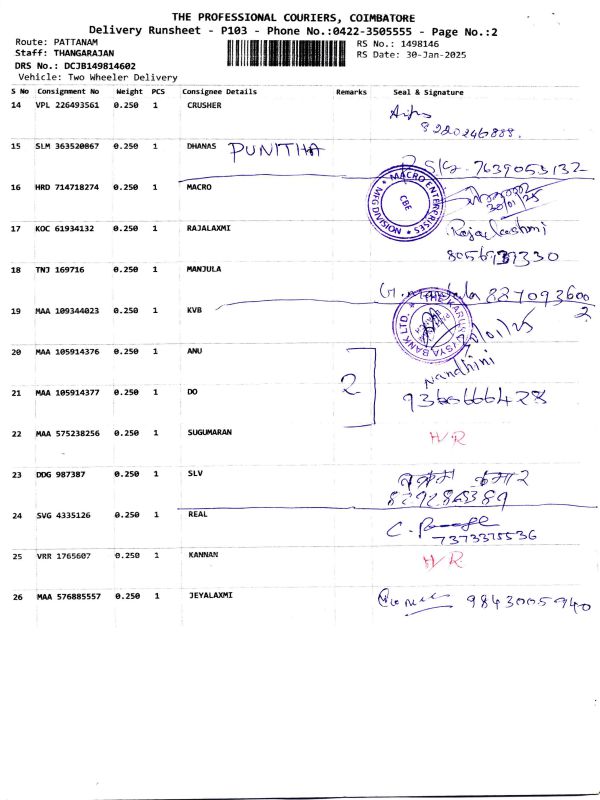 THE PROFESSIONAL COURIERS, COIMBATORE
Delivery Runsheet - P103 - Phone No.:0422-3505555 - Page No.:2
Route: PATTANAM
RS No.: 1498146
Staff: THANGARAJAN
RS Date: 30-Jan-2025
DRS No.: DCJB149814602
Vehicle: Two Wheeler Delivery
S No Consignment No Weight PCS Consignee Details Remarks Seal & Signature
14 VPL 226493561 0.250 1 CRUSHER
8220246888.
15 SLM 363520867 0.250 1 DHANAS PUNITHA
7639053132
16 HRD 714718274 0.250 1 MACRO
MACRO ENTERPRISES
CBE
30/01/25
17 KOC 61934132 0.250 1 RAJALAXMI
Rajalakshmi
8056939330
18 TNJ 169716 0.250 1 MANJULA
827093600
2
19 MAA 109344023 0.250 1 KVB
THE KARUR VYSYA BANK LTD.
20 MAA 105914376 0.250 1 ANU
Nandhini
2
21 MAA 105914377 0.250 1 DO
22 MAA 575238256 0.250 1 SUGUMARAN
H/R
23 DDG 987387 0.250 1 SLV
24 SVG 4335126 0.250 1 REAL
7373375536
25 VRR 1765607 0.250 1 KANNAN
H/R
26 MAA 576885557 0.250 1 JEYALAXMI
9843005940